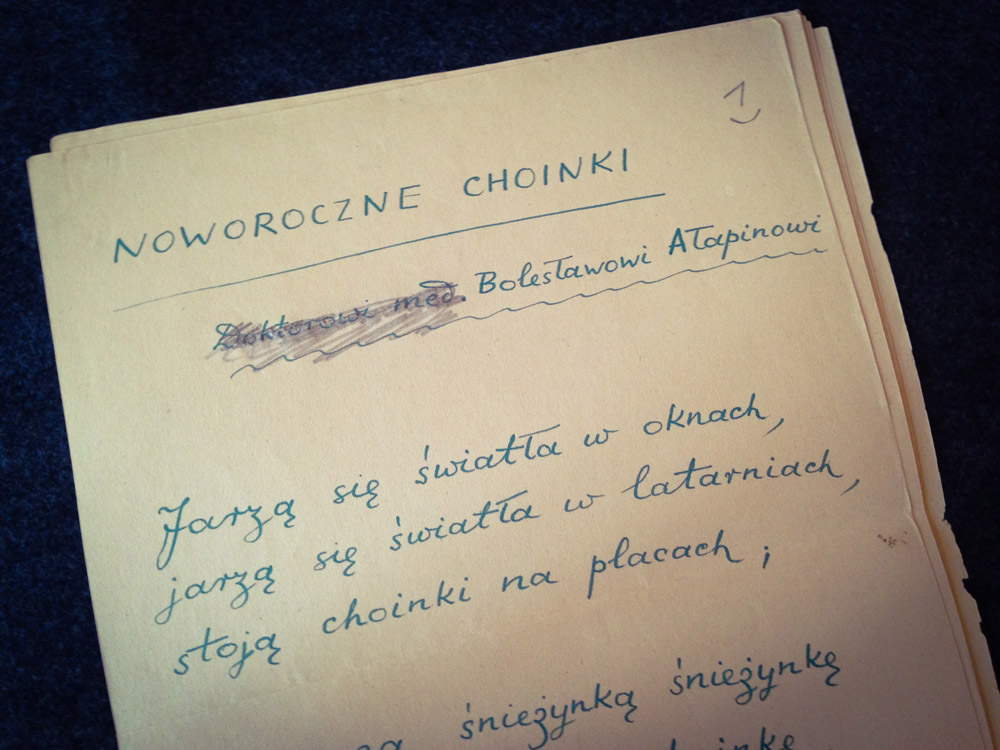 1
NOWOROCZNE CHOINKI
Doktorowi med. Bolesławowi Atapinowi
Jarzą się światła w oknach,
jarzą się światła w latarniach,
stoją choinki na placach;
śnieżynką śnieżynkę